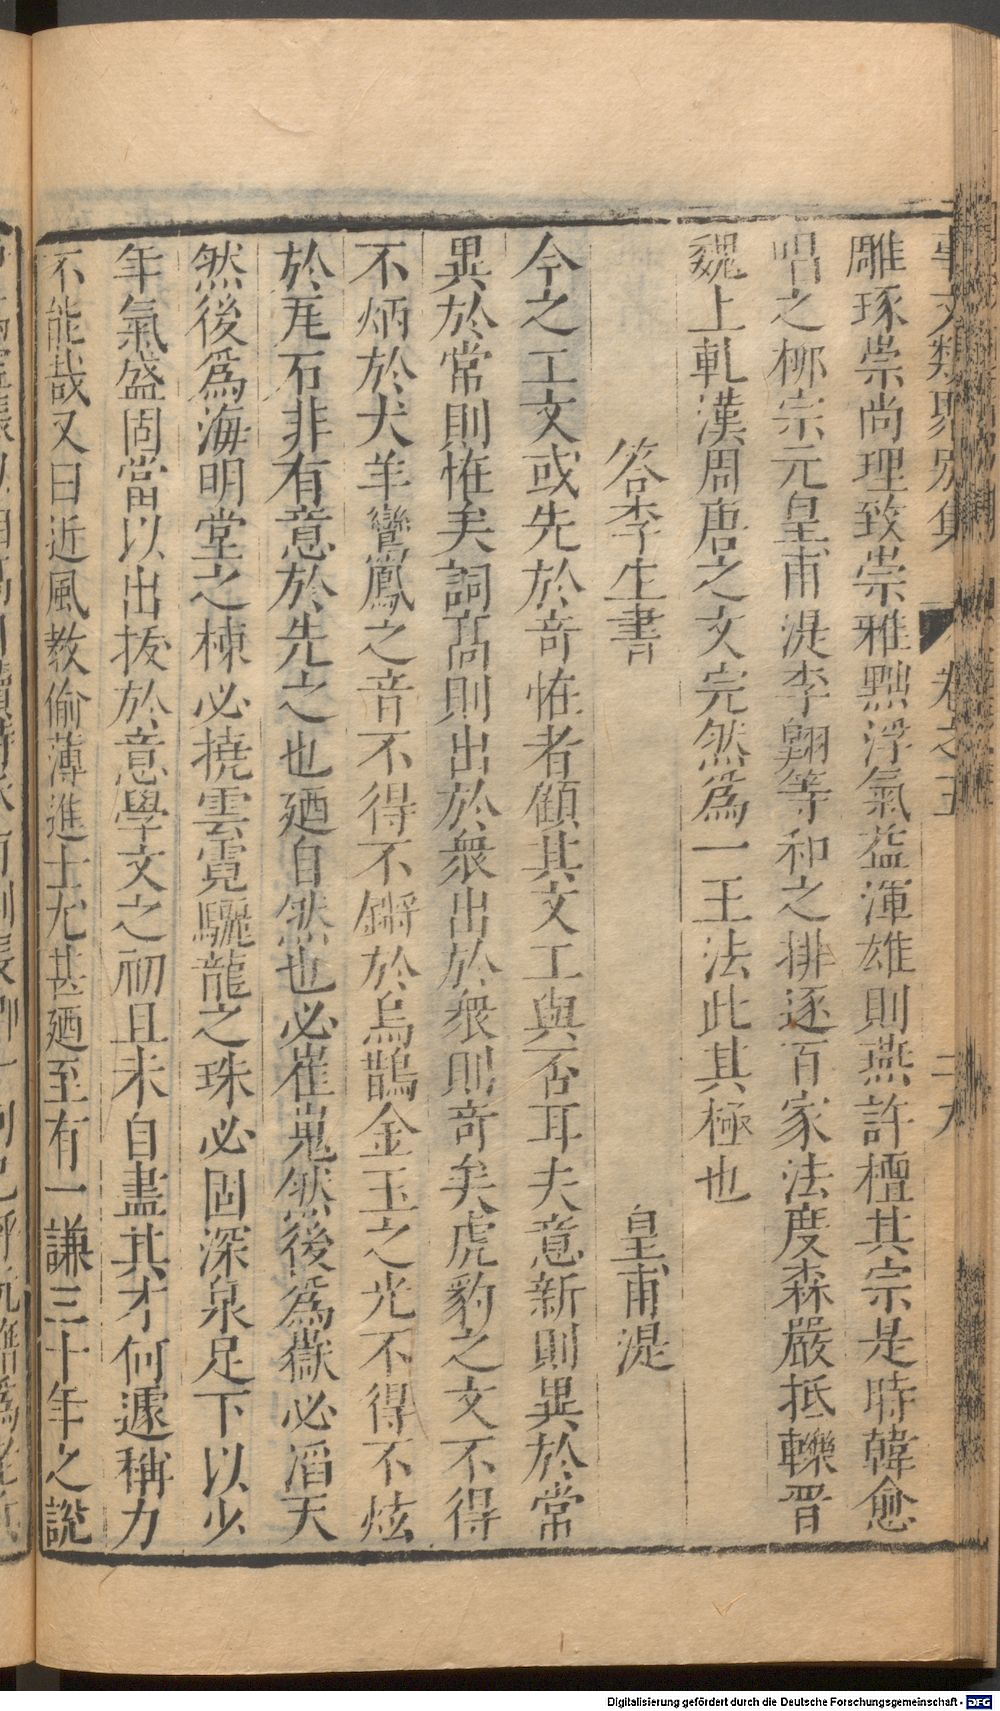 事文類聚別集 卷之五 二十九
雕琢崇尚理致崇雅黜浮氣益渾雄則燕許擅其宗是時韓愈
唱之柳宗元皇甫湜李翱等和之排逐百家法度森嚴抵轢晋
魏上軋漢周唐之文完然爲一王法此其極也
答李生書 皇甫湜
今之工文或先於奇恠者顧其文工與否耳夫意新則異於常
異於常則恠矣詞高則出於衆出於衆則奇矣虎豹之文不得
不炳於犬羊鸞鳳之音不得不鏘於烏鵲金玉之光不得不炫
於瓦石非有意於先之也廼自然也必崔嵬然後爲嶽必滔天
然後爲海明堂之棟必撓雲霓驪龍之珠必固深泉足下以少
年氣盛固當以出拔於意學文之初且未自盡其才何遽稱力
不能哉又曰近風教偷薄進士尤甚廼至有一謙三十年之說
Digitalisierung gefördert durch die Deutsche Forschungsgemeinschaft - DFG